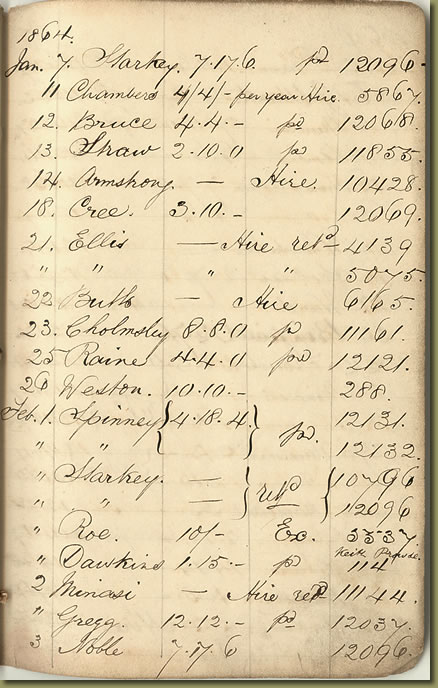 1864.
Jan. 7. Starkey. 7.17.6. pd 12096
11 Chambers 4/4/- per year Hire. 5867.
12. Bruce 4.4.- pd 12068.
13. Shaw 2.10.0 pd 11855.
14. Armstrong. — Hire. 10428.
18. Cree. 3.10.- 12069.
21. Ellis — Hire retd 4139
" " " " 5075.
22 — Hire 6165.
23. Cholmsley 8.8.0 pd 11161.
25 Raine 4.4.0 pd 12121.
26 Weston. 10.10.- 288.
Feb. 1. Spinney {4.18.4.} pd. 12131.
" " 12132.
" Starkey. — } retd { 10796
" " — 12096
" Roe. 10/- Ex. 3537.
" Dawkins 1.15.- pd Keith Prowse. 114
2 Minasi — Hire retd 11144.
" Gregg. 12.12.- pd 12037.
3 Noble 7.17.6 12096.